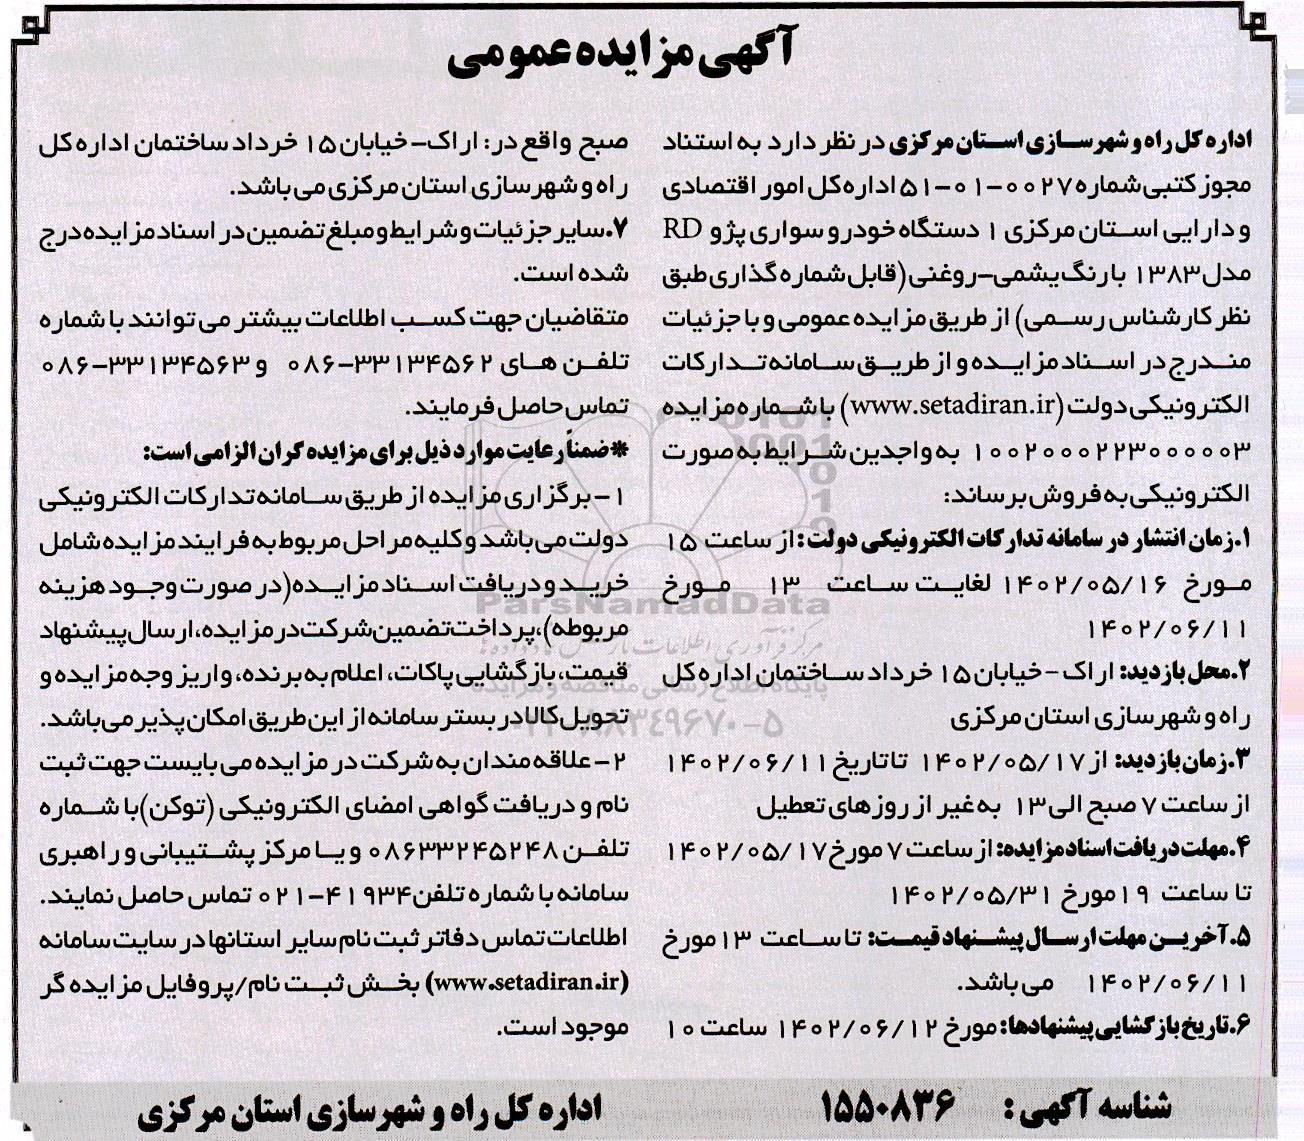 آگهی مزایده عمومی
اداره کل راه و شهرسازی استان مرکزی در نظر دارد به استناد
مجوز کتبی شماره ۰۰۲۷-۰۱-۵۱ اداره کل امور اقتصادی
و دارایی استان مرکزی ۱ دستگاه خودرو سواری پژو RD
مدل ۱۳۸۳ با رنگ یشمی-روغنی (قابل شماره گذاری طبق
نظر کارشناس رسمی) از طریق مزایده عمومی و با جزئیات
مندرج در اسناد مزایده و از طریق سامانه تدارکات
الکترونیکی دولت (www.setadiran.ir) با شماره مزایده
۱۰۰۲۰۰۰۲۲۳۰۰۰۰۰۳ به واجدین شرایط به صورت
الکترونیکی به فروش برساند:
۱.زمان انتشار در سامانه تدارکات الکترونیکی دولت: از ساعت ۱۵
مورخ ۱۴۰۲/۰۵/۱۶ لغایت ساعت ۱۳ مورخ
۱۴۰۲/۰۶/۱۱
۲.محل بازدید: اراک - خیابان ۱۵ خرداد ساختمان اداره کل
راه و شهرسازی استان مرکزی
۳.زمان بازدید: از ۱۴۰۲/۰۵/۱۷ تا تاریخ ۱۴۰۲/۰۶/۱۱
از ساعت ۷ صبح الی ۱۳ به غیر از روزهای تعطیل
۴.مهلت دریافت اسناد مزایده: از ساعت ۷ مورخ ۱۴۰۲/۰۵/۱۷
تا ساعت ۱۹ مورخ ۱۴۰۲/۰۵/۳۱
۵.آخرین مهلت ارسال پیشنهاد قیمت: تا ساعت ۱۳ مورخ
۱۴۰۲/۰۶/۱۱ می باشد.
۶.تاریخ بازگشایی پیشنهادها: مورخ ۱۴۰۲/۰۶/۱۲ ساعت ۱۰
صبح واقع در: اراک- خیابان ۱۵ خرداد ساختمان اداره کل
راه و شهرسازی استان مرکزی می باشد.
۷.سایر جزئیات و شرایط و مبلغ تضمین در اسناد مزایده درج
شده است.
متقاضیان جهت کسب اطلاعات بیشتر می توانند با شماره
تلفن های ۳۳۱۳۴۵۶۲-۰۸۶ و ۳۳۱۳۴۵۶۳-۰۸۶
تماس حاصل فرمایند.
*ضمناً رعایت موارد ذیل برای مزایده گران الزامی است:
۱- برگزاری مزایده از طریق سامانه تدارکات الکترونیکی
دولت می باشد و کلیه مراحل مربوط به فرایند مزایده شامل
خرید و دریافت اسناد مزایده (در صورت وجود هزینه
مربوطه)، پرداخت تضمین شرکت در مزایده، ارسال پیشنهاد
قیمت، بازگشایی پاکات، اعلام به برنده، واریز وجه مزایده و
تحویل کالا در بستر سامانه از این طریق امکان پذیر می باشد.
۲- علاقه مندان به شرکت در مزایده می بایست جهت ثبت
نام و دریافت گواهی امضای الکترونیکی (توکن) با شماره
تلفن ۰۸۶۳۳۲۴۵۲۴۸ و یا مرکز پشتیبانی و راهبری
سامانه با شماره تلفن ۴۱۹۳۴-۰۲۱ تماس حاصل نمایند.
اطلاعات تماس دفاتر ثبت نام سایر استانها در سایت سامانه
(www.setadiran.ir) بخش ثبت نام/پروفایل مزایده گر
موجود است.
شناسه آگهی: ۱۵۵۰۸۳۶
اداره کل راه و شهرسازی استان مرکزی
ParsNamadData
پایگاه اطلاع رسانی مناقصه و مزایده
۰۲۱-۸۸۳۴۹۶۷۰-۵